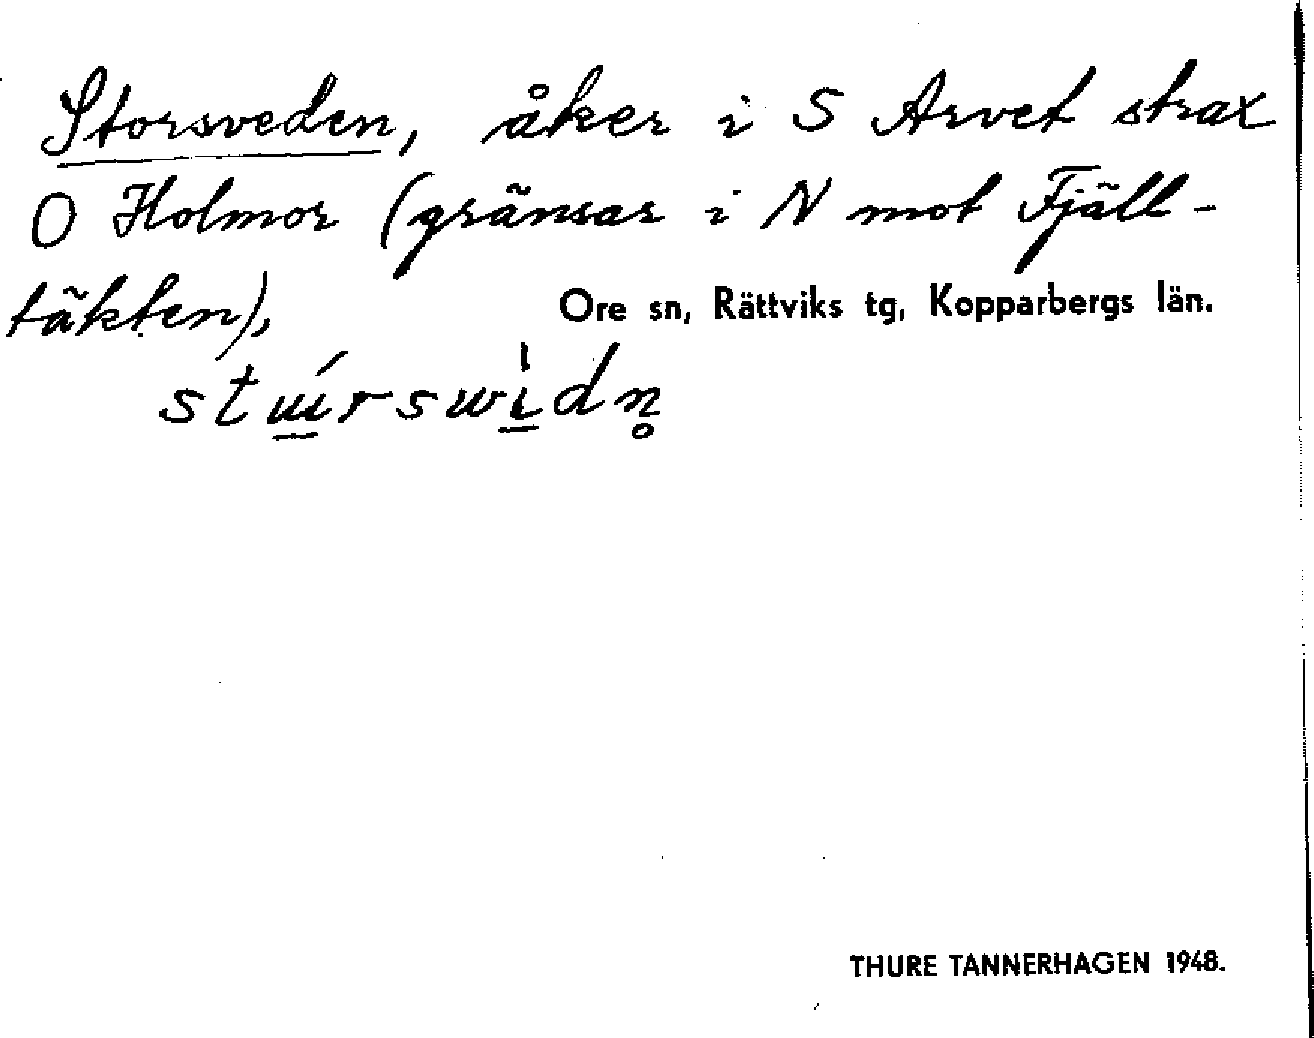 Storsveden, åker i S Arvet strax
O Holmor (gränsar i N mot Fjäll-
täkten),
Ore sn, Rättviks tg, Kopparbergs län.
stɯ̲́rswı̲̍dn̥
THURE TANNERHAGEN 1948.